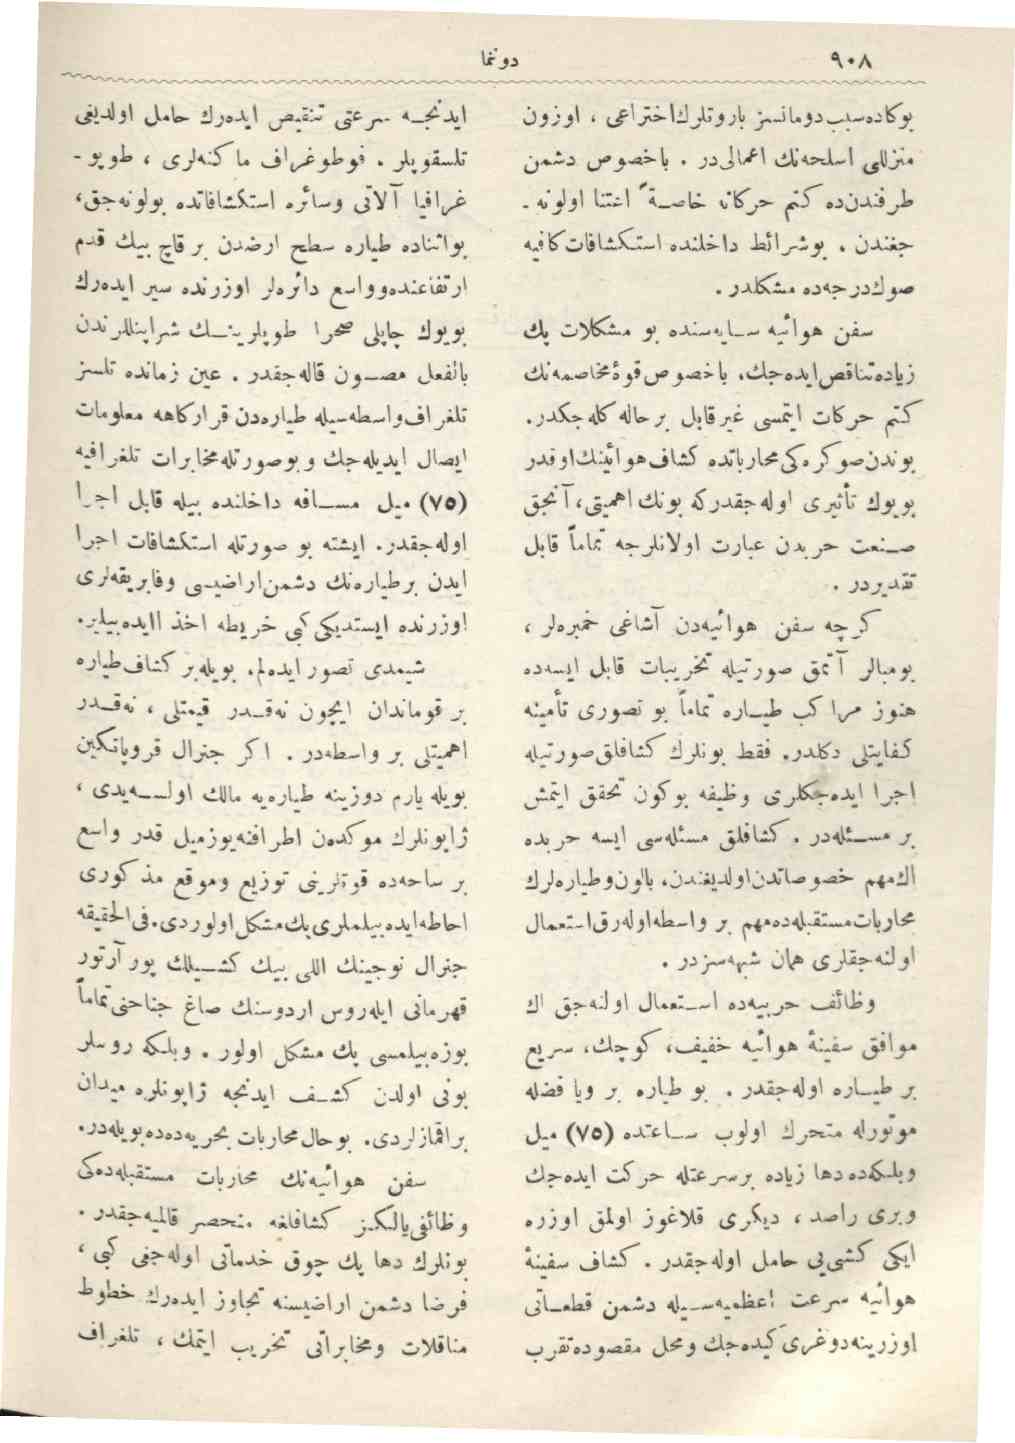 ٩٠٨
دونما
بوكاده سبب دومانسز باروتلرك اختراعی ، اوزون
منزللی اسلحه‌نك اعمالی در . باخصوص دشمن
طرفندن ده كتم حركاته خاصةً اعتنا اولونه ـ
جغندن . بو شرائط داخلنده استكشافات كافیه
صوك درجه ده مشكلدر .
سفن هوائیه سایه سنده بو مشكلات پك
زیاده تناقص ایده جك، باخصوص قوۀ مخاصمه نك
كتم حركات ایتمسی غیر قابل بر حاله كله جكدر.
بوندن صوكره كی محارباتده كشاف هوائینك اوقدر
بویوك تأثیری اوله جقدركه بونك اهمیتی، آنجق
صنعت حربدن عبارت اولانلرجه تماماً قابل
تقدیردر .
كرچه سفن هوائیه دن آشاغی خمبره لر ،
بومبالر آتمق صورتیله تخریبات قابل ایسه ده
هنوز مراكب طیاره تماماً بو تصوری تأمینه
كفایتلی دكلدر. فقط بونلرك كشافلق صورتیله
اجرا ایده جكلری وظیفه بوكون تحقق ایتمش
بر مسئله در . كشافلق مسئله سی ایسه حربده
اك مهم خصوصاتدن اولدیغندن، بالون و طیاره لرك
محاربات مستقبله ده مهم بر واسطه اوله رق استعمال
اولنه جقلری همان شبهه سزدر .
وظائف حربیه ده استعمال اولنه جق اك
موافق سفینۀ هوائیه خفیف، كوچك، سریع
بر طیاره اوله جقدر . بو طیاره بر ویا فضله
موتورله متحرك اولوب ساعتده (٧٥) میل
وبلكه ده دها زیاده بر سرعتله حركت ایده جك
وبری راصد ، دیكری قلاغوز اولمق اوزره
ایكی كشی یی حامل اوله جقدر . كشاف سفینۀ
هوائیه سرعت اعظمیه سیله دشمن قطعاتی
اوزرینه دوغری كیده جك و محل مقصوده تقرب
ایدنجه سرعتی تنقیص ایده رك حامل اولدیغی
تلسقوپلر . فوطوغراف ماكنه لری ، طوپو ـ
غرافیا آلاتی وسائره استكشافاتده بولونه جق،
بواثناده طیاره سطح ارضدن بر قاچ بیك قدم
ارتفاعنده وواسع دائره لر اوزرنده سیر ایده رك
بویوك چاپلی صحرا طوپلرینك شراپنللرندن
بالفعل مصون قاله جقدر . عین زمانده تلسز
تلغراف واسطه سیله طیاره دن قراركاهه معلومات
ایصال ایدیله جك و بوصورتله مخابرات تلغرافیه
(٧٥) میل مسافه داخلنده بیله قابل اجرا
اوله جقدر. ایشته بو صورتله استكشافات اجرا
ایدن بر طیاره نك دشمن اراضیسی وفابریقه لری
اوزرنده ایستدیكی كبی خریطه اخذ ایده بیلیر.
شیمدی تصور ایده لم. بویله بر كشاف طیاره
بر قوماندان ایچون نه قدر قیمتلی ، نه قدر
اهمیتلی بر واسطه در . اكر جنرال قروپاتكین
بویله یارم دوزینه طیاره یه مالك اولسه یدی ،
ژاپونلرك موكدەن اطرافنه یوز میل قدر واسع
بر ساحه ده قوتلرینی توزیع وموقع مذكوری
احاطه ایده بیلملری پك مشكل اولوردی. فی الحقیقه
جنرال نوجینك اللی بیك كشیلك پور آرتور
قهرمانی ایله روس اردوسنك صاغ جناحنی تماماً
بوزه بیلمسی پك مشكل اولور . وبلكه روسلر
بونی اولدن كشف ایدنجه ژاپونلره میدان
براقمازلردی. بو حال محاربات بحریه ده ده بویله در.
سفن هوائیه نك محاربات مستقبله ده كی
وظائفی یالكز كشافلغه منحصر قالمیه جقدر .
بونلرك دها پك چوق خدماتی اوله جغی كبی ،
فرضا دشمن اراضیسنه تجاوز ایده رك خطوط
مناقلات ومخابراتی تخریب ایتمك ، تلغراف